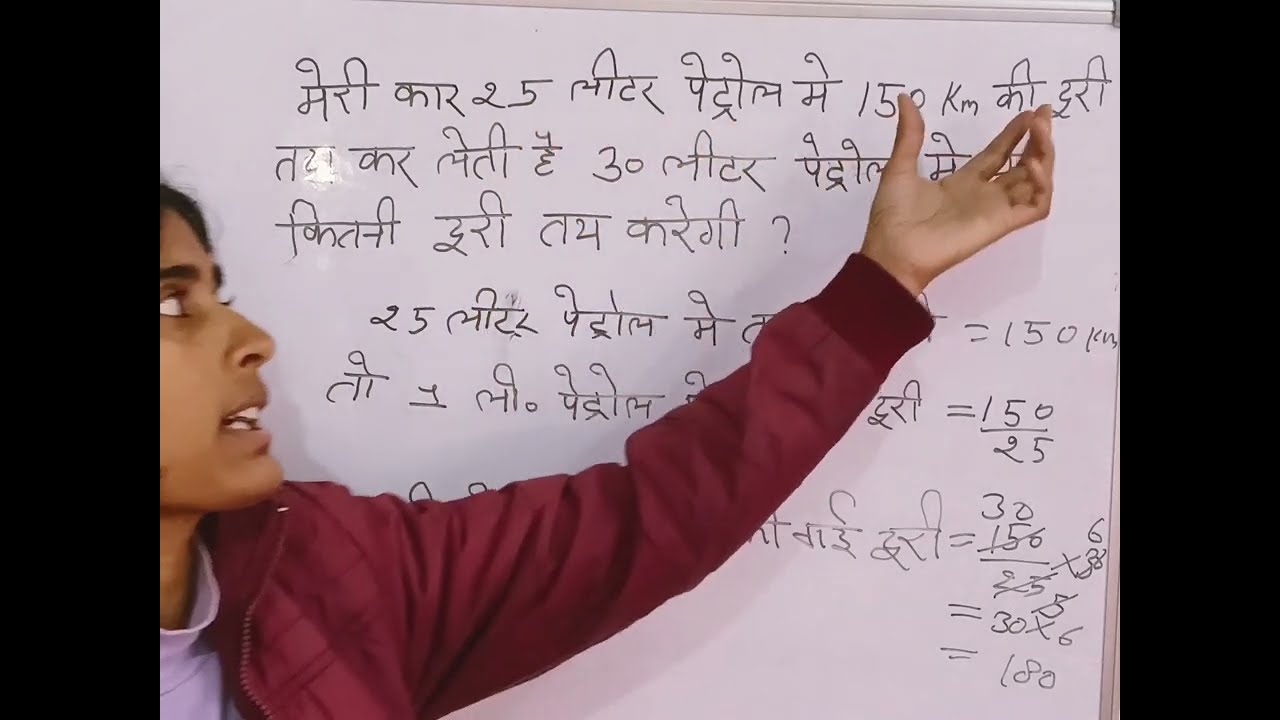 मेरी कार 25 लीटर पेट्रोल मे 150 Km की दूरी
तय कर लेती है 30 लीटर पेट्रोल मे
कितनी दूरी तय करेगी ?
25 लीटर पेट्रोल मे = 150 km
तो 1 ली० पेट्रोल दूरी = 150
25
गई दूरी = 150 30
25 5 × 30 6
= 30×6
= 180